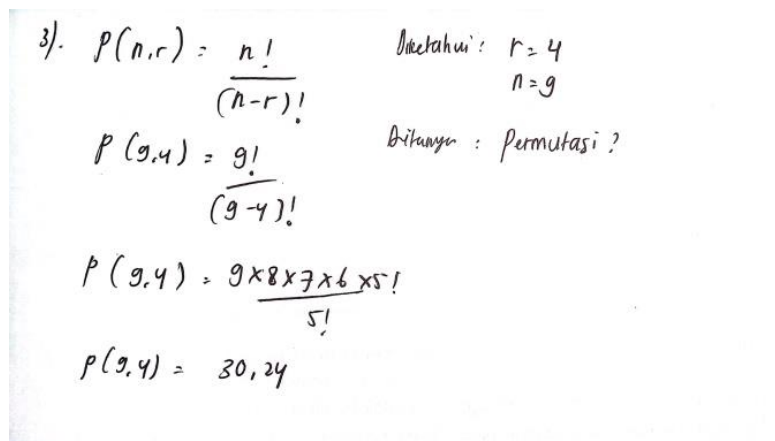 3). P(n,r) = n!
(n-r)!
Diketahui : r = 4
n = 9
P (9,4) = 9!
(9-4)!
Ditanya : Permutasi ?
P (9,4) = 9x8x7x6x5!
5!
P(9,4) = 30,24